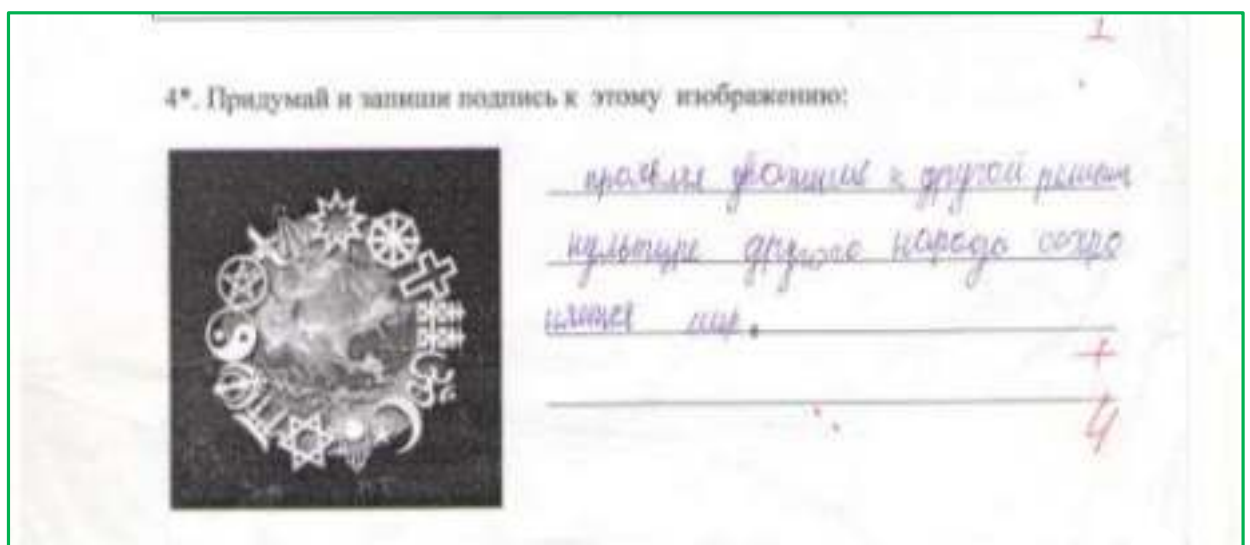 1
4*. Придумай и запиши подпись к этому изображению:
проявляя уважение к другой религи
культуре другого народа сохро
няется мир.
+
4